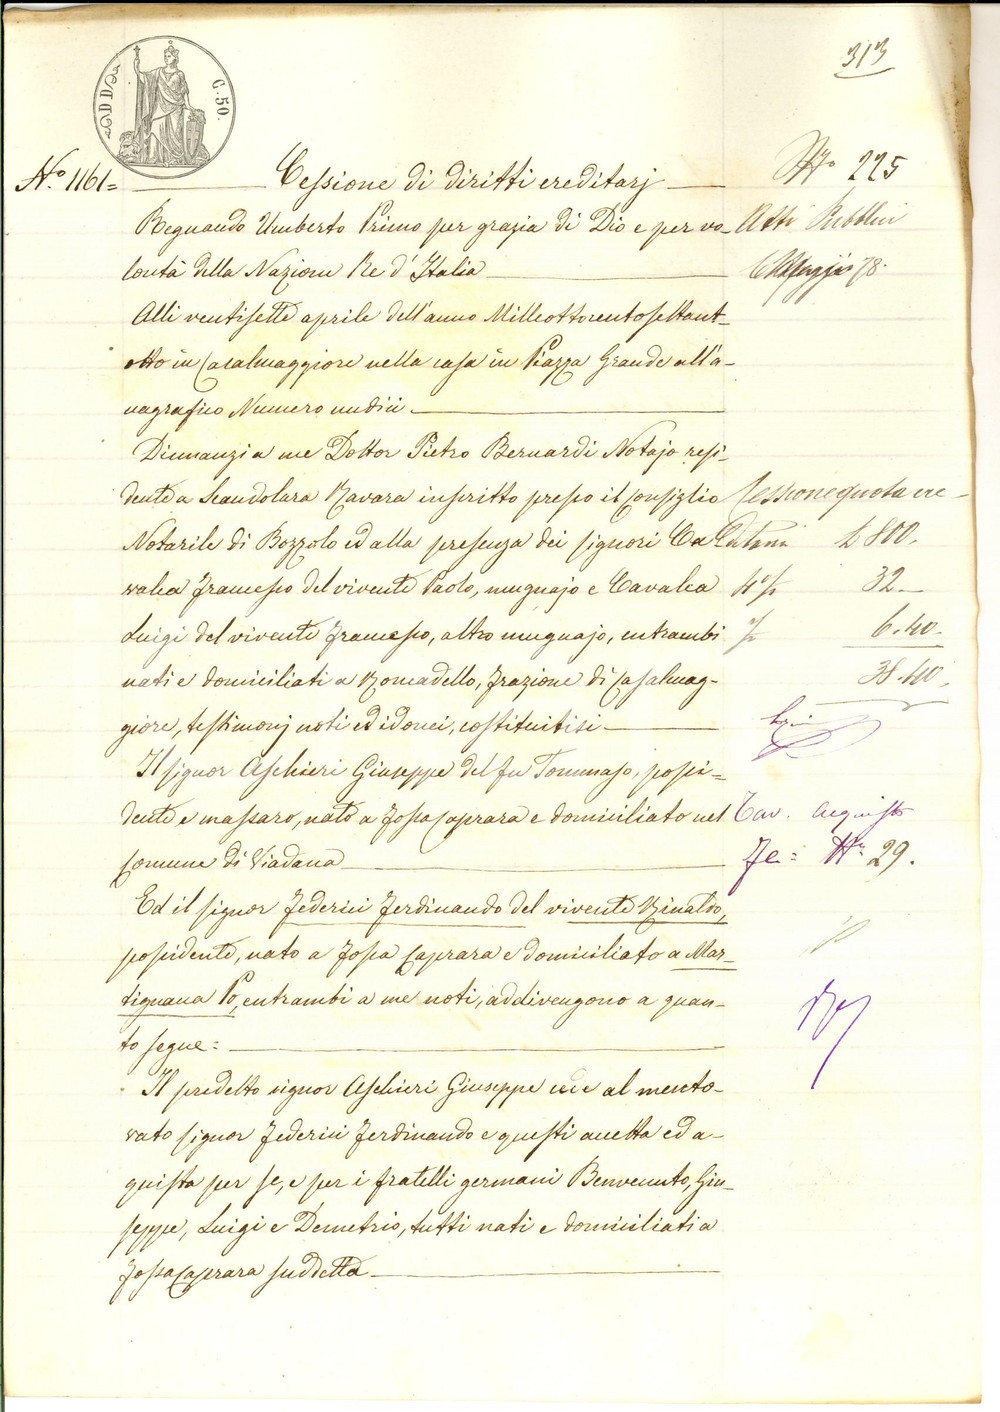 313
C. 50.
N.º 1161= Cessione di diritti ereditarj
Nº 225
Regnando Umberto Primo per grazia di Dio e per vo-
Atti Pubblici
lontà della Nazione Re d'Italia
6 Maggio 78.
Alli ventisette aprile dell'anno Milleottocentosettant-
otto in Casalmaggiore nella casa in Piazza Grande all'a-
nagrafico Numero undici
Dinnanzi a me Dottor Pietro Bernardi Notajo resi-
dente a Scandolara Ravara inscritto presso il Consiglio
Cessione quota ere-
Notarile di Bozzolo ed alla presenza dei signori Ca
ditaria £ 800.
valca Francesco del vivente Paolo, mugnajo e Cavalca
4 % 32.—
Luigi del vivente Francesco, altro mugnajo, entrambi
6.40.
nati e domiciliati a Roncadello, frazione di Casalmag-
38.40.
giore, testimonj noti ed idonei, costituitisi
Il signor Aschieri Giuseppe del fu Tommaso, possi=
dente e massaro, nato a Fossa Caprara e domiciliato nel
Tav. acquisti
Comune di Viadana
Fe= Nº 29.
Ed il signor Federici Ferdinando del vivente Rinaldo,
possidente, nato a Fossa Caprara e domiciliato a Mar-
tignana Po, entrambi a me noti, addivengono a quan-
to segue:
Il predetto signor Aschieri Giuseppe cede al mento-
vato signor Federici Ferdinando e questi accetta ed a-
quista per se, e per i fratelli germani Benvenuto, Giu-
seppe, Luigi e Demetrio, tutti nati e domiciliati a
Fossa Caprara suddetta